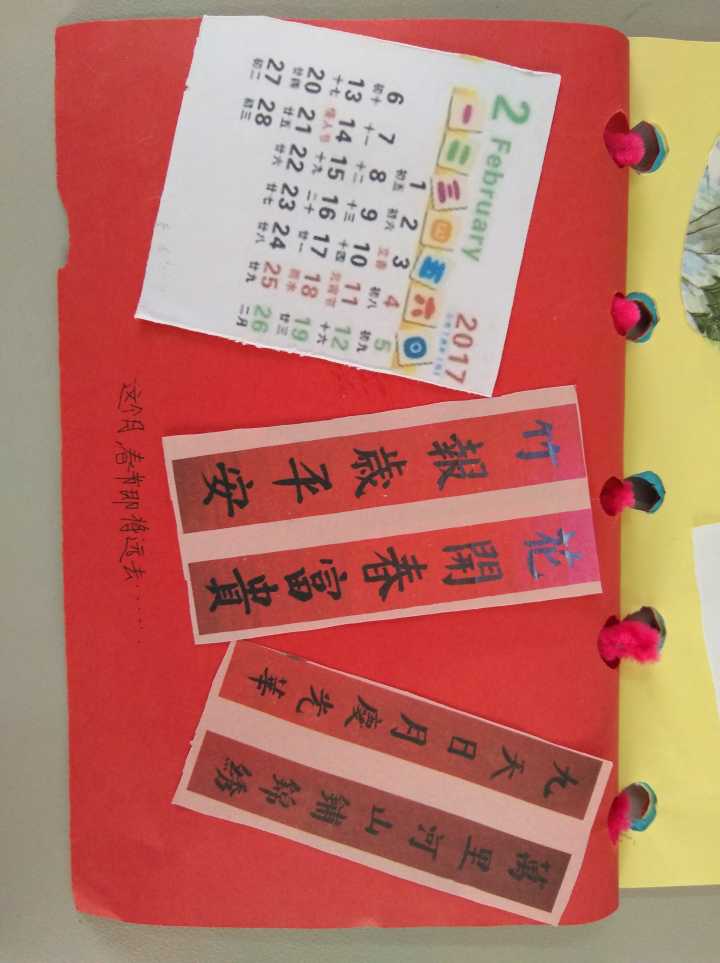 2 February 2017
一 二 三 四 五 六 日
1 2 3 4 5
初五 初六 立春 初八 初九
6 7 8 9 10 11 12
初十 十一 十二 十三 十四 元宵节 十六
13 14 15 16 17 18 19
十七 情人节 十九 二十 廿一 雨水 廿三
20 21 22 23 24 25 26
廿四 廿五 廿六 廿七 廿八 廿九 二月
27 28
初二 初三
竹報歳平安
花開春富貴
九天日月慶光華
萬里河山鋪錦綉
这个月,春节即将远去……